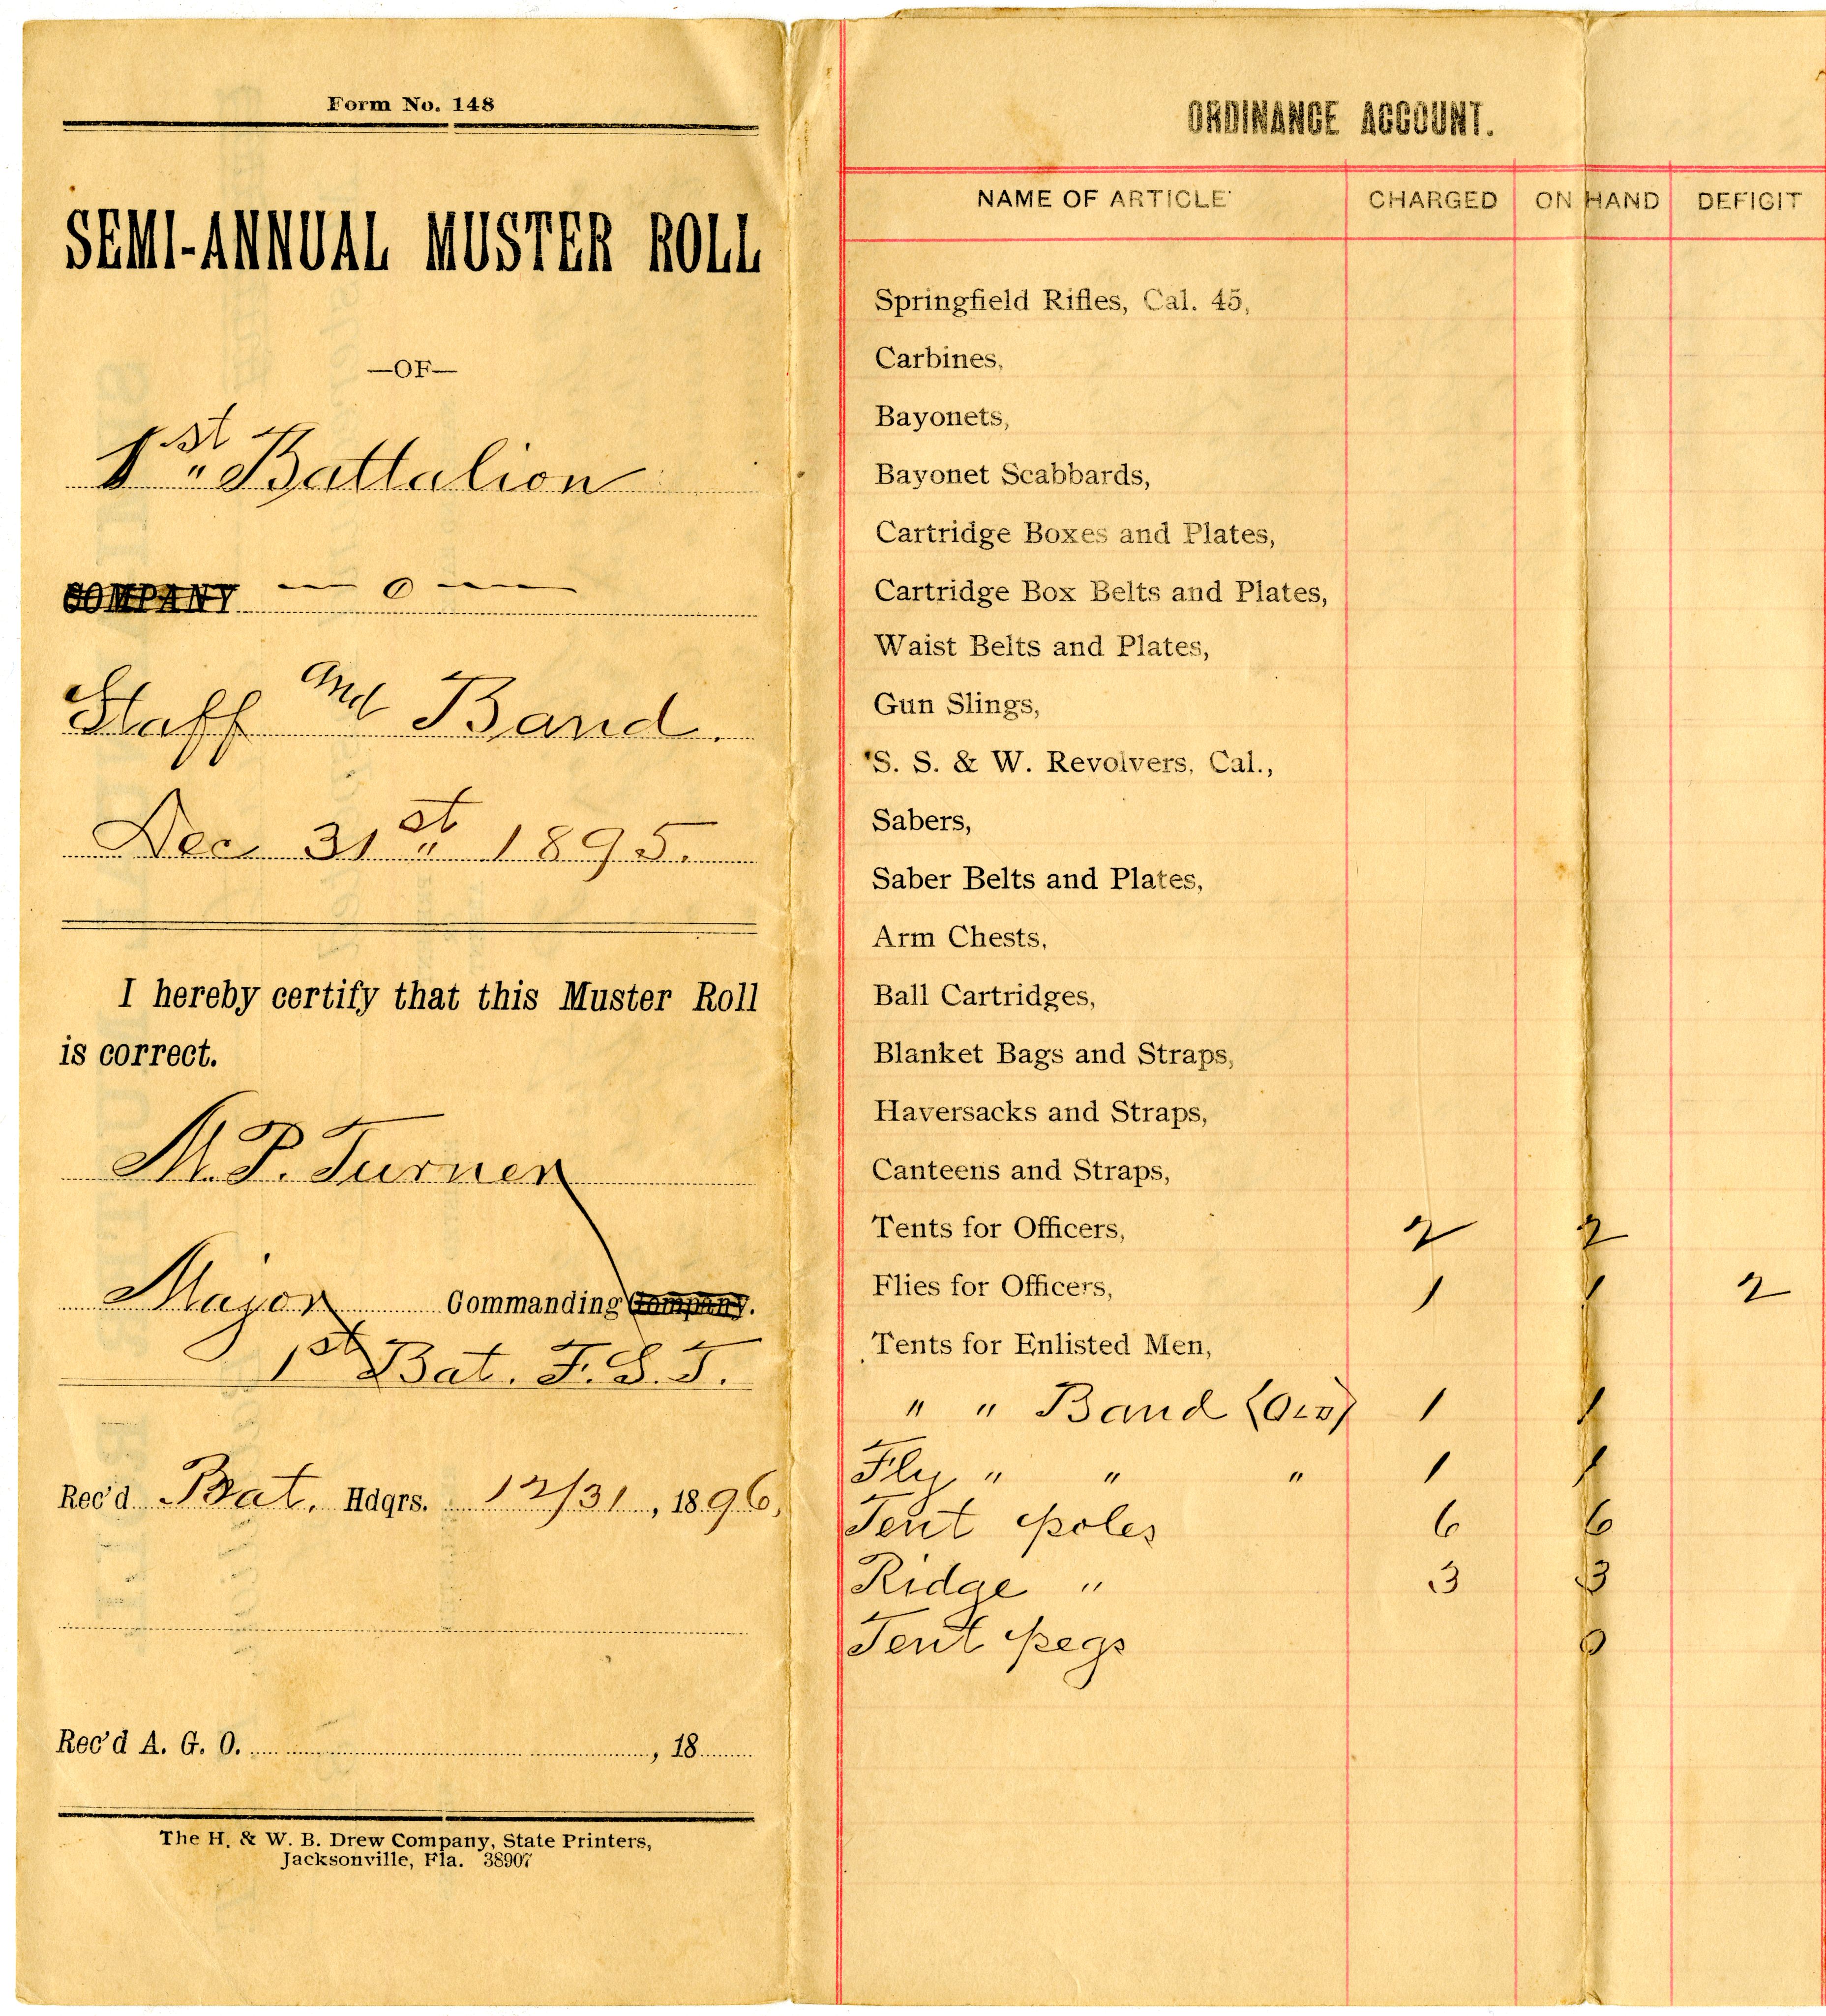 Form No. 148
SEMI-ANNUAL MUSTER ROLL
—OF—
1st Battalion
COMPANY — 0 —
Staff and Band.
Dec 31st 1895.
I hereby certify that this Muster Roll
is correct.
M. P. Turner
Major Commanding Company.
1st Bat. F. S. T.
Rec'd Bat. Hdqrs. 12/31, 1896,
Rec'd A. G. O. , 18
The H. & W. B. Drew Company, State Printers,
Jacksonville, Fla. 38907
ORDINANCE ACCOUNT.
NAME OF ARTICLE CHARGED ON HAND DEFICIT
Springfield Rifles, Cal. 45,
Carbines,
Bayonets,
Bayonet Scabbards,
Cartridge Boxes and Plates,
Cartridge Box Belts and Plates,
Waist Belts and Plates,
Gun Slings,
S. S. & W. Revolvers, Cal.,
Sabers,
Saber Belts and Plates,
Arm Chests,
Ball Cartridges,
Blanket Bags and Straps,
Haversacks and Straps,
Canteens and Straps,
Tents for Officers, 2 2
Flies for Officers, 1 1 2
Tents for Enlisted Men,
" " Band (Old) 1 1
Fly " " " 1 1
Tent poles 6 6
Ridge " 3 3
Tent pegs 0